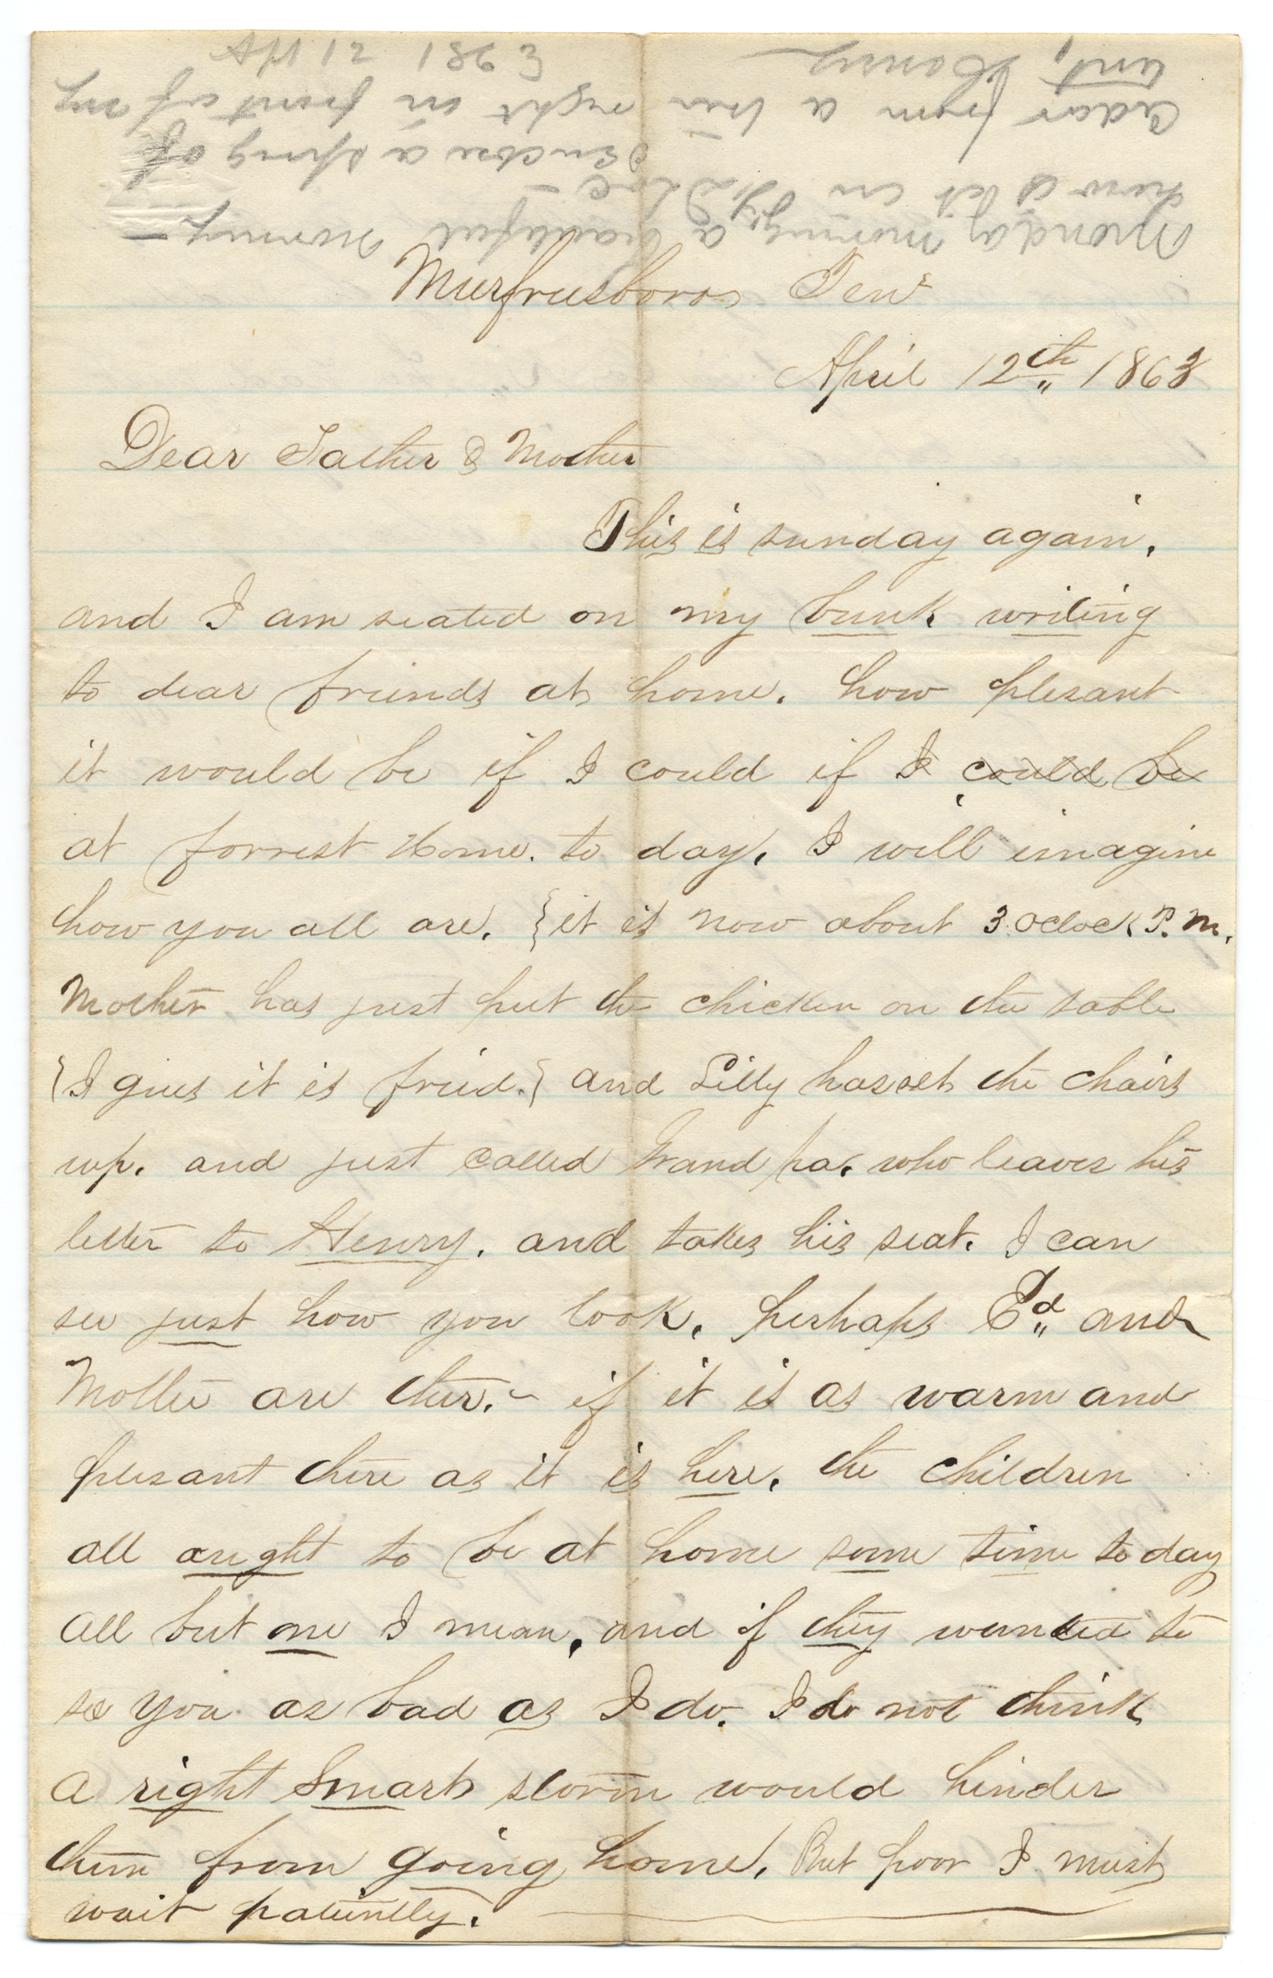 Monday morning, a beautiful morning —
how is it on yr Place —
I Enclose a sprig of
Cedar from a tree right in front of my
tent, Henry
Apl 12 1863
Murfreesboro Ten
April 12th 1863
Dear Father & Mother
This is sunday again,
and I am seated on my bunk writing
to dear friends at home. how plesant
it would be if I could if I could be
at forrest Home. to day, I will imagine
how you all are. {it is now about 3 Oclock P.M.
Mother has just put the chicken on the table
{I gues it is fried.} and Lilly has set the chairs
up. and just called Grand pa. who leaves his
letter to Henry. and takes his seat. I can
see just how you look, perhaps Ed and
Mollie are ther. - if it is as warm and
plesant there as it is here, the children
all aught to be at home some time to day
all but one I mean, and if they wanted to
see you as bad as I do. I do not think
a right Smart storm would hinder
them from going home, But poor I must
wait patiently.